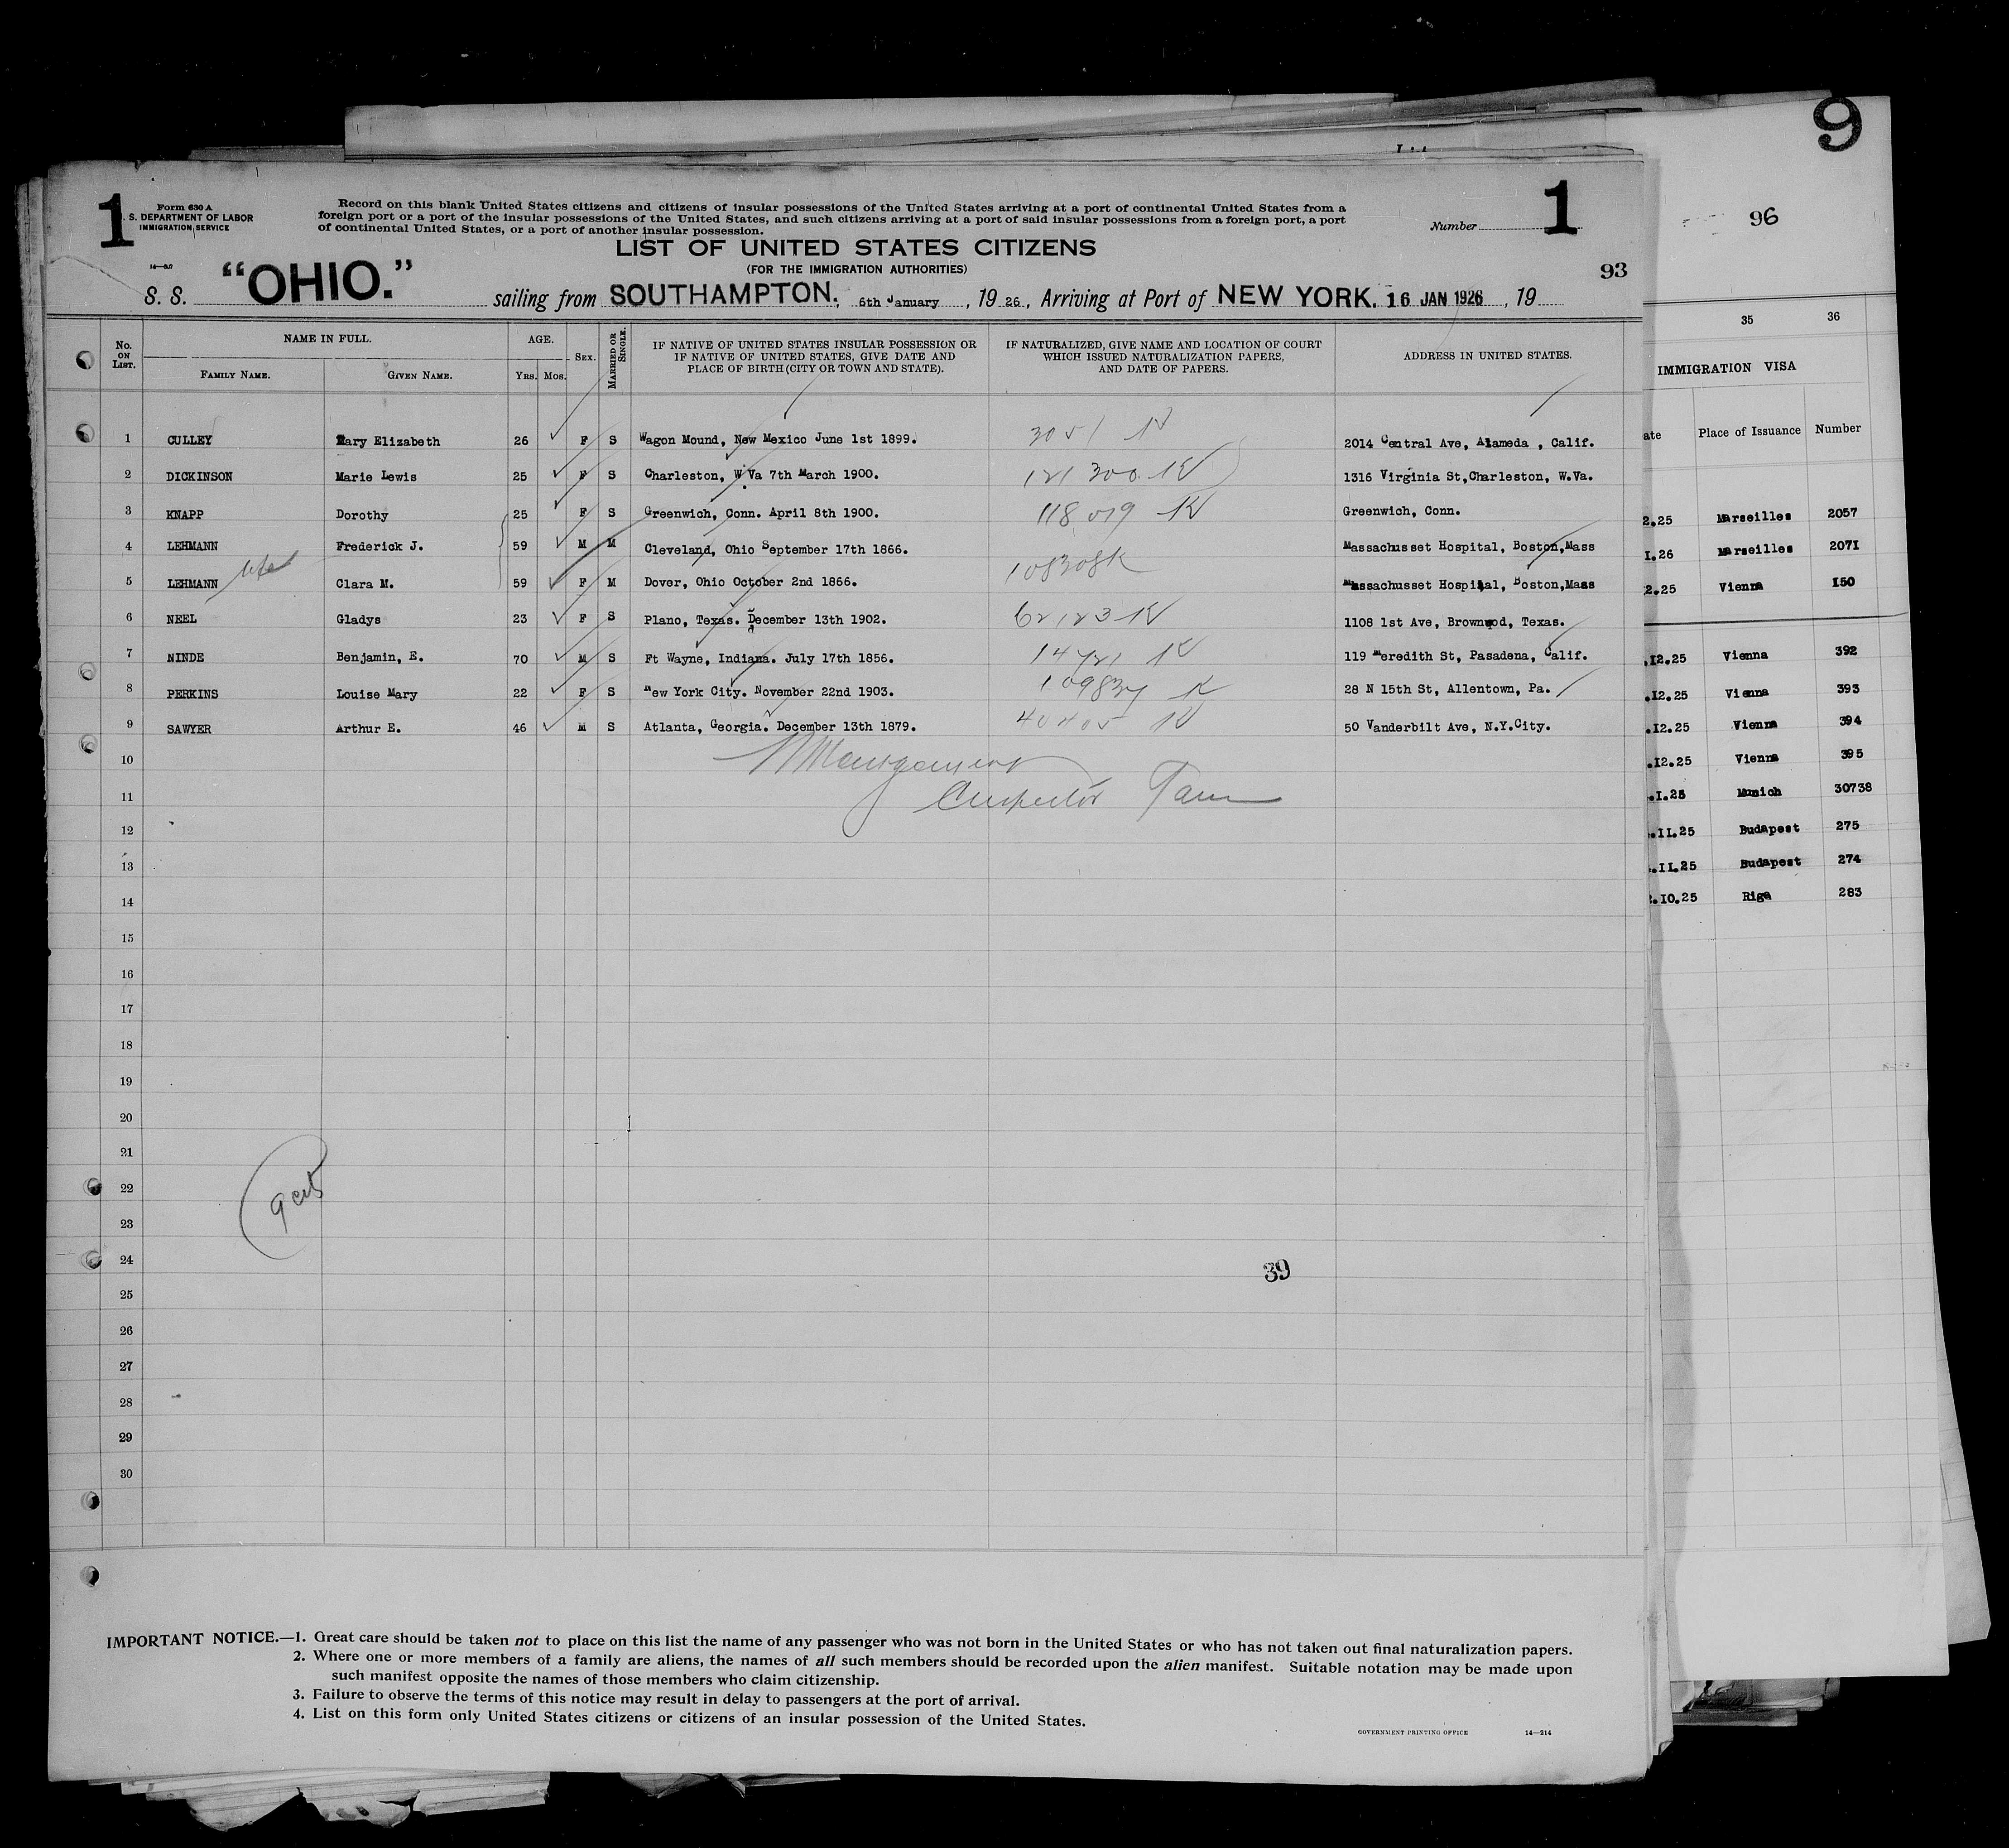 9
96
1
Form 630 A
S. DEPARTMENT OF LABOR
IMMIGRATION SERVICE
Record on this blank United States citizens and citizens of insular possessions of the United States arriving at a port of continental United States from a
foreign port or a port of the insular possessions of the United States, and such citizens arriving at a port of said insular possessions from a foreign port, a port
of continental United States, or a port of another insular possession.
Number 1
LIST OF UNITED STATES CITIZENS
(FOR THE IMMIGRATION AUTHORITIES)
93
S. S. "OHIO." sailing from SOUTHAMPTON, 6th January, 19 26, Arriving at Port of NEW YORK. 16 JAN 1926, 19
No. ON LIST.
NAME IN FULL.
FAMILY NAME.
GIVEN NAME.
AGE.
YRS. MOS.
SEX.
MARRIED OR SINGLE.
IF NATIVE OF UNITED STATES INSULAR POSSESSION OR
IF NATIVE OF UNITED STATES, GIVE DATE AND
PLACE OF BIRTH (CITY OR TOWN AND STATE).
IF NATURALIZED, GIVE NAME AND LOCATION OF COURT
WHICH ISSUED NATURALIZATION PAPERS,
AND DATE OF PAPERS.
ADDRESS IN UNITED STATES.
1 CULLEY Mary Elizabeth 26 F S Wagon Mound, New Mexico June 1st 1899. 2014 Central Ave, Alameda , Calif.
2 DICKINSON Marie Lewis 25 F S Charleston, W.Va 7th March 1900. 121300 K 1316 Virginia St,Charleston, W.Va.
3 KNAPP Dorothy 25 F S Greenwich, Conn. April 8th 1900. 118019 K Greenwich, Conn.
4 LEHMANN Frederick J. 59 M M Cleveland, Ohio September 17th 1866. Massachusset Hospital, Boston,Mass
5 LEHMANN wife Clara M. 59 F M Dover, Ohio October 2nd 1866. 108308K Massachusset Hospital, Boston,Mass
6 NEEL Gladys 23 F S Plano, Texas. December 13th 1902. 62123 K 1108 1st Ave, Brownwod, Texas.
7 NINDE Benjamin, E. 70 M S Ft Wayne, Indiana. July 17th 1856. 119 Meredith St, Pasadena, Calif.
8 PERKINS Louise Mary 22 F S New York City. November 22nd 1903. 109837 K 28 N 15th St, Allentown, Pa.
9 SAWYER Arthur E. 46 M S Atlanta, Georgia. December 13th 1879. 40405 K 50 Vanderbilt Ave, N.Y.City.
10
11 Inspector
12
13
14
15
16
17
18
19
20
21
22
23
24
25
26
27
28
29
30
39
35 36
IMMIGRATION VISA
ate Place of Issuance Number
2.25 Marseilles 2057
1.26 Marseilles 2071
2.25 Vienna 150
.12.25 Vienna 392
.12.25 Vienna 393
.12.25 Vienna 394
.12.25 Vienna 395
.I.25 Munich 30738
.11.25 Budapest 275
.11.25 Budapest 274
.10.25 Riga 283
IMPORTANT NOTICE.—1. Great care should be taken not to place on this list the name of any passenger who was not born in the United States or who has not taken out final naturalization papers.
2. Where one or more members of a family are aliens, the names of all such members should be recorded upon the alien manifest. Suitable notation may be made upon
such manifest opposite the names of those members who claim citizenship.
3. Failure to observe the terms of this notice may result in delay to passengers at the port of arrival.
4. List on this form only United States citizens or citizens of an insular possession of the United States.
GOVERNMENT PRINTING OFFICE 14—214